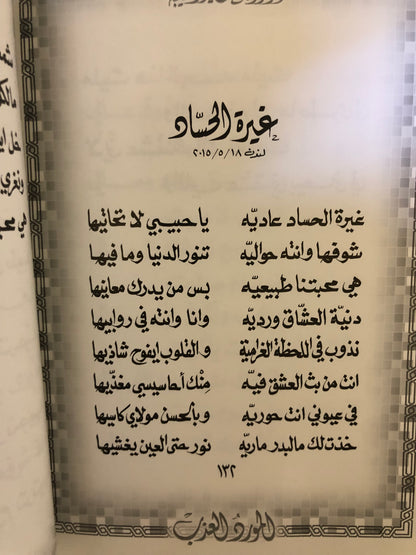 غيرة الحسّاد
لندن ٢٠١٥/٥/١٨
غيرة الحساد عاديّه يا حبيبي لا تحاتيها
شوفها وانته حواليّه تنور الدنيا وما فيها
هي محبتنا طبيعيّه بس من يدرك معانيها
دنية العشّاق ورديّه وانا وانته في روابيها
نذوب في اللحظة الغراميّة والقلوب ايفوح شاذيها
انت من بث العشق فيّه منك أحاسيسي مغذّيها
في عيوني انت حوريّه وبالحسن مولاي كاسيها
خذت لك مالبدر ماريّه نور حتى العين يغشيها
١٣٢
المورد العذب